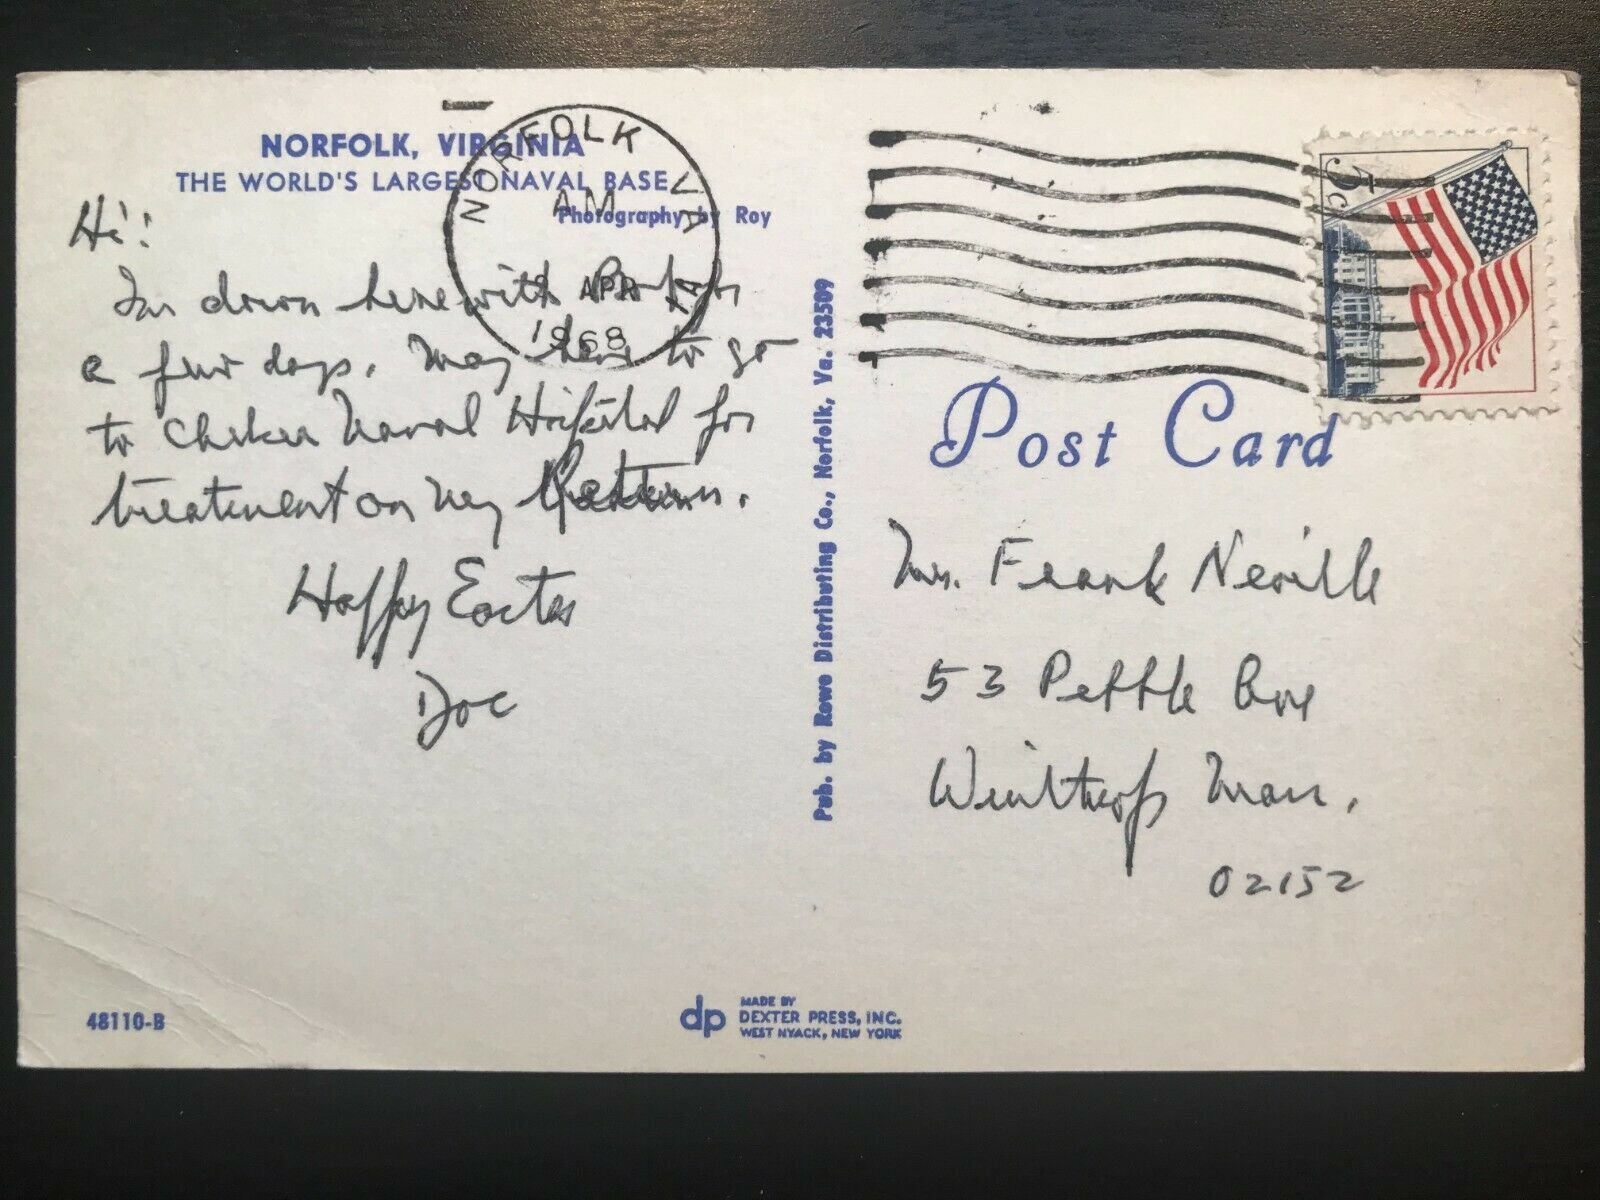 NORFOLK, VIRGINIA
THE WORLD'S LARGEST NAVAL BASE
Photography by Roy
NORFOLK VA
AM
9 APR
1968
5c
Hi!
Im down here with for
a few days. May have to go
to Naval Hospital for
treatment on my
Happy Easter
Doc
Pub. by Rowe Distributing Co., Norfolk, Va. 23509
Post Card
Mr. Frank Neville
53 Pebble Ave
Winthrop Mass.
02152
48110-B
dp
MADE BY
DEXTER PRESS, INC.
WEST NYACK, NEW YORK